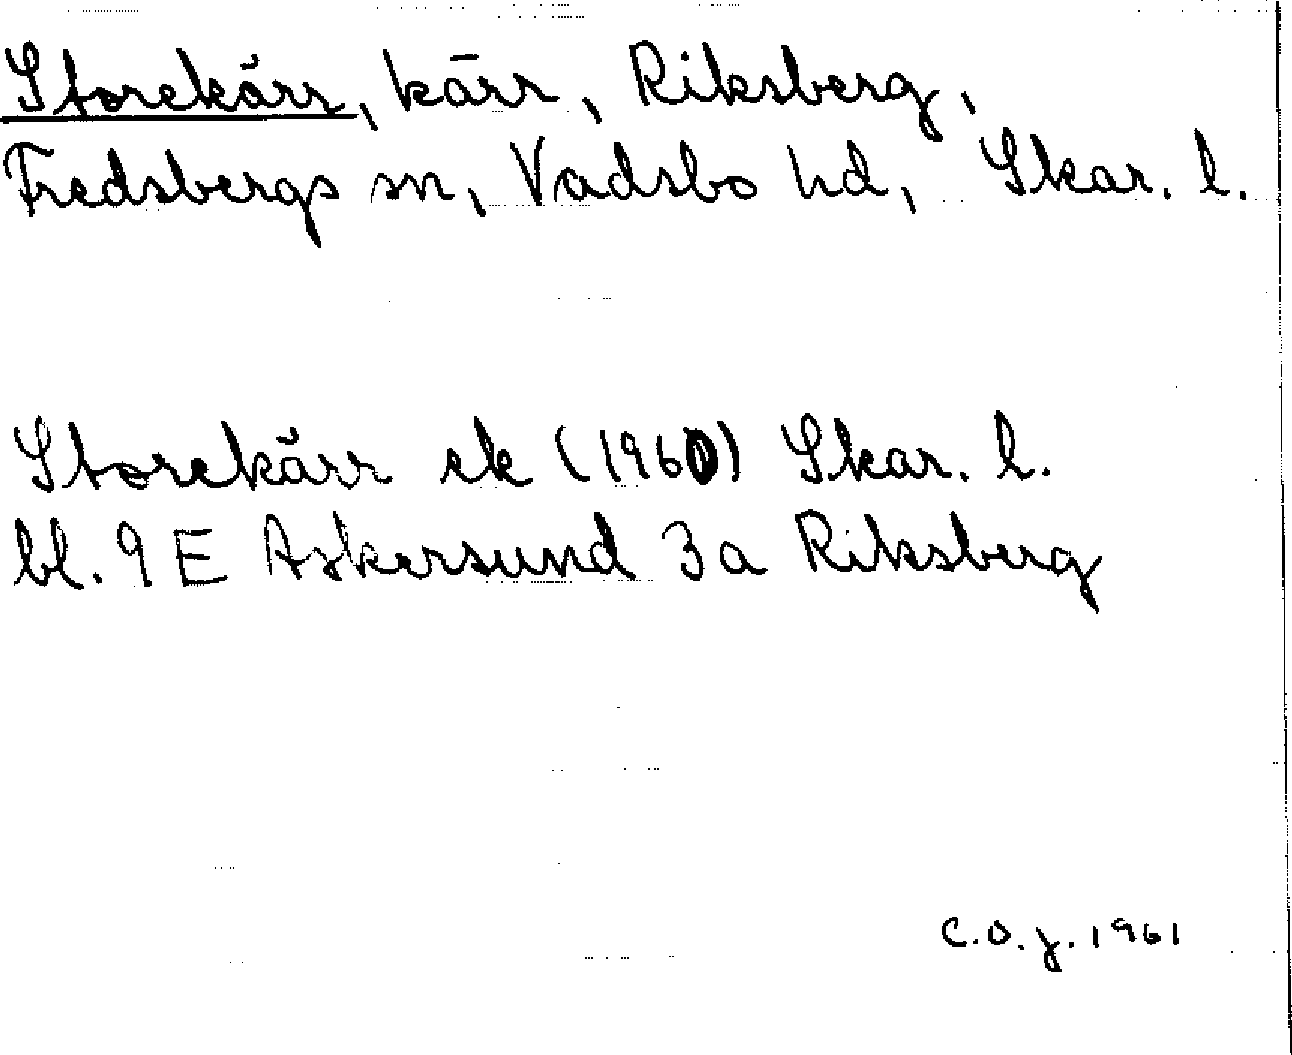 Storekärr, kärr, Riksberg,
Fredsbergs sn, Vadsbo hd, Skar. l.
Storekärr ek (1960) Skar. l.
bl. 9 E Askersund 3a Riksberg
C.O.J. 1961